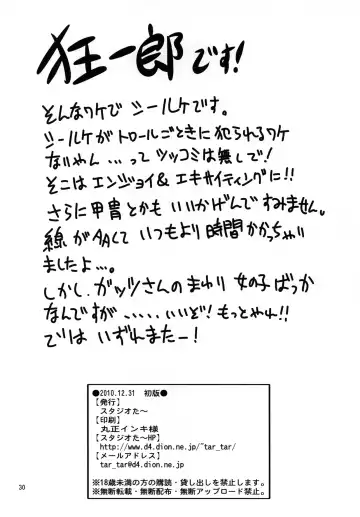 狂一郎です!
そんなワケでシールケです。
シールケがトロールごときに犯られるワケ
ないやん…ってツッコミは無しで!
そこはエンジョイ&エキサイティングに!!
さらに甲冑とかもいいかげんですみません。
線が多くていつもより時間かかっちゃい
ましたよ…。
しかし、ガッツさんのまわり女の子ばっか
なんですが……いいぞ!もっとやれ!!
ではいずれまたー!
●2010.12.31 初版●
【発行】
スタジオた〜
【印刷】
丸正インキ様
【スタジオた〜HP】
http://www.d4.dion.ne.jp/~tar_tar/
【メールアドレス】
tar_tar@d4.dion.ne.jp
※18歳未満の方の購読・貸し出しを禁止します。
※無断転載・無断配布・無断アップロード禁止。
30